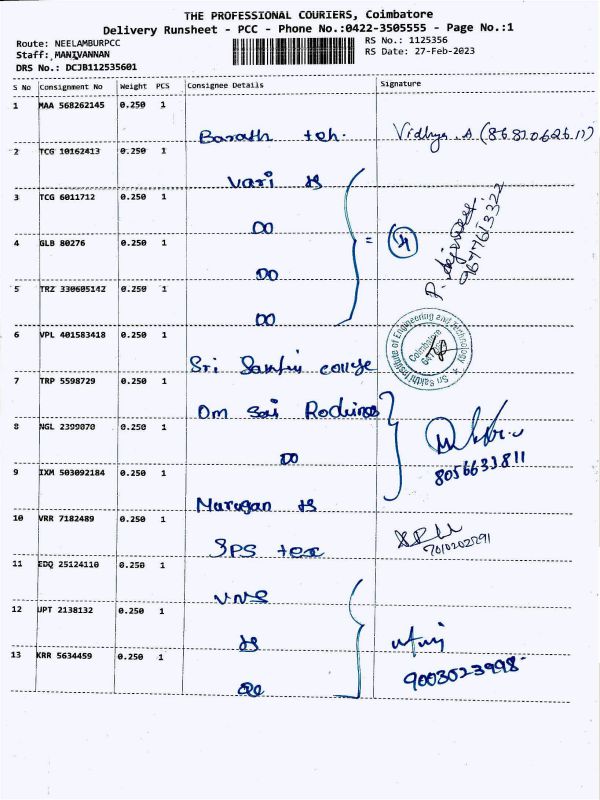 THE PROFESSIONAL COURIERS, Coimbatore
Delivery Runsheet - PCC - Phone No.:0422-3505555 - Page No.:1
Route: NEELAMBURPCC
RS No.: 1125356
Staff: MANIVANNAN
RS Date: 27-Feb-2023
DRS No.: DCJB112535601
S No Consignment No Weight PCS Consignee Details Signature
1 MAA 568262145 0.250 1
Barath teh. Vidhya .A
2 TCG 10162413 0.250 1
Vari
3 TCG 6011712 0.250 1
DO
4 GLB 80276 0.250 1
DO
5 TRZ 330605142 0.250 1
DO
6 VPL 401583418 0.250 1
Sri Sakthi college
Sri Sakthi Institute of Engineering and Technology
Coimbatore
7 TRP 5598729 0.250 1
Om Sai
8 NGL 2399070 0.250 1
DO
8056633811
9 IXM 503092184 0.250 1
Murugan
10 VRR 7182489 0.250 1
SPS tex
11 EDQ 25124110 0.250 1
VNS
12 UPT 2138132 0.250 1
13 KRR 5634459 0.250 1
9003023998